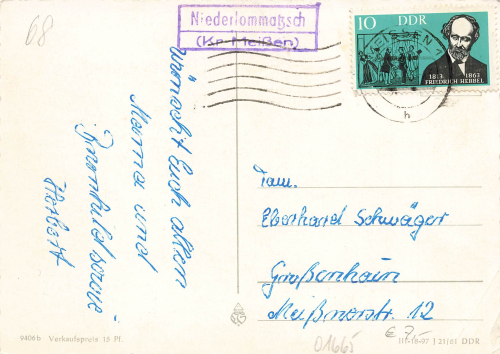 68
Niederlommatzsch
(Kr. Meißen)
10 DDR
1813 1863
FRIEDRICH HEBBEL
h
wünscht Euch allen
Mama und
sowie
Herbert
Fam.
Eberhard Schwäger
Großenhain
Meißnerstr. 12
€ 7,-
01665
9406b Verkaufspreis 15 Pf.
III-18-97 f 21/61 DDR